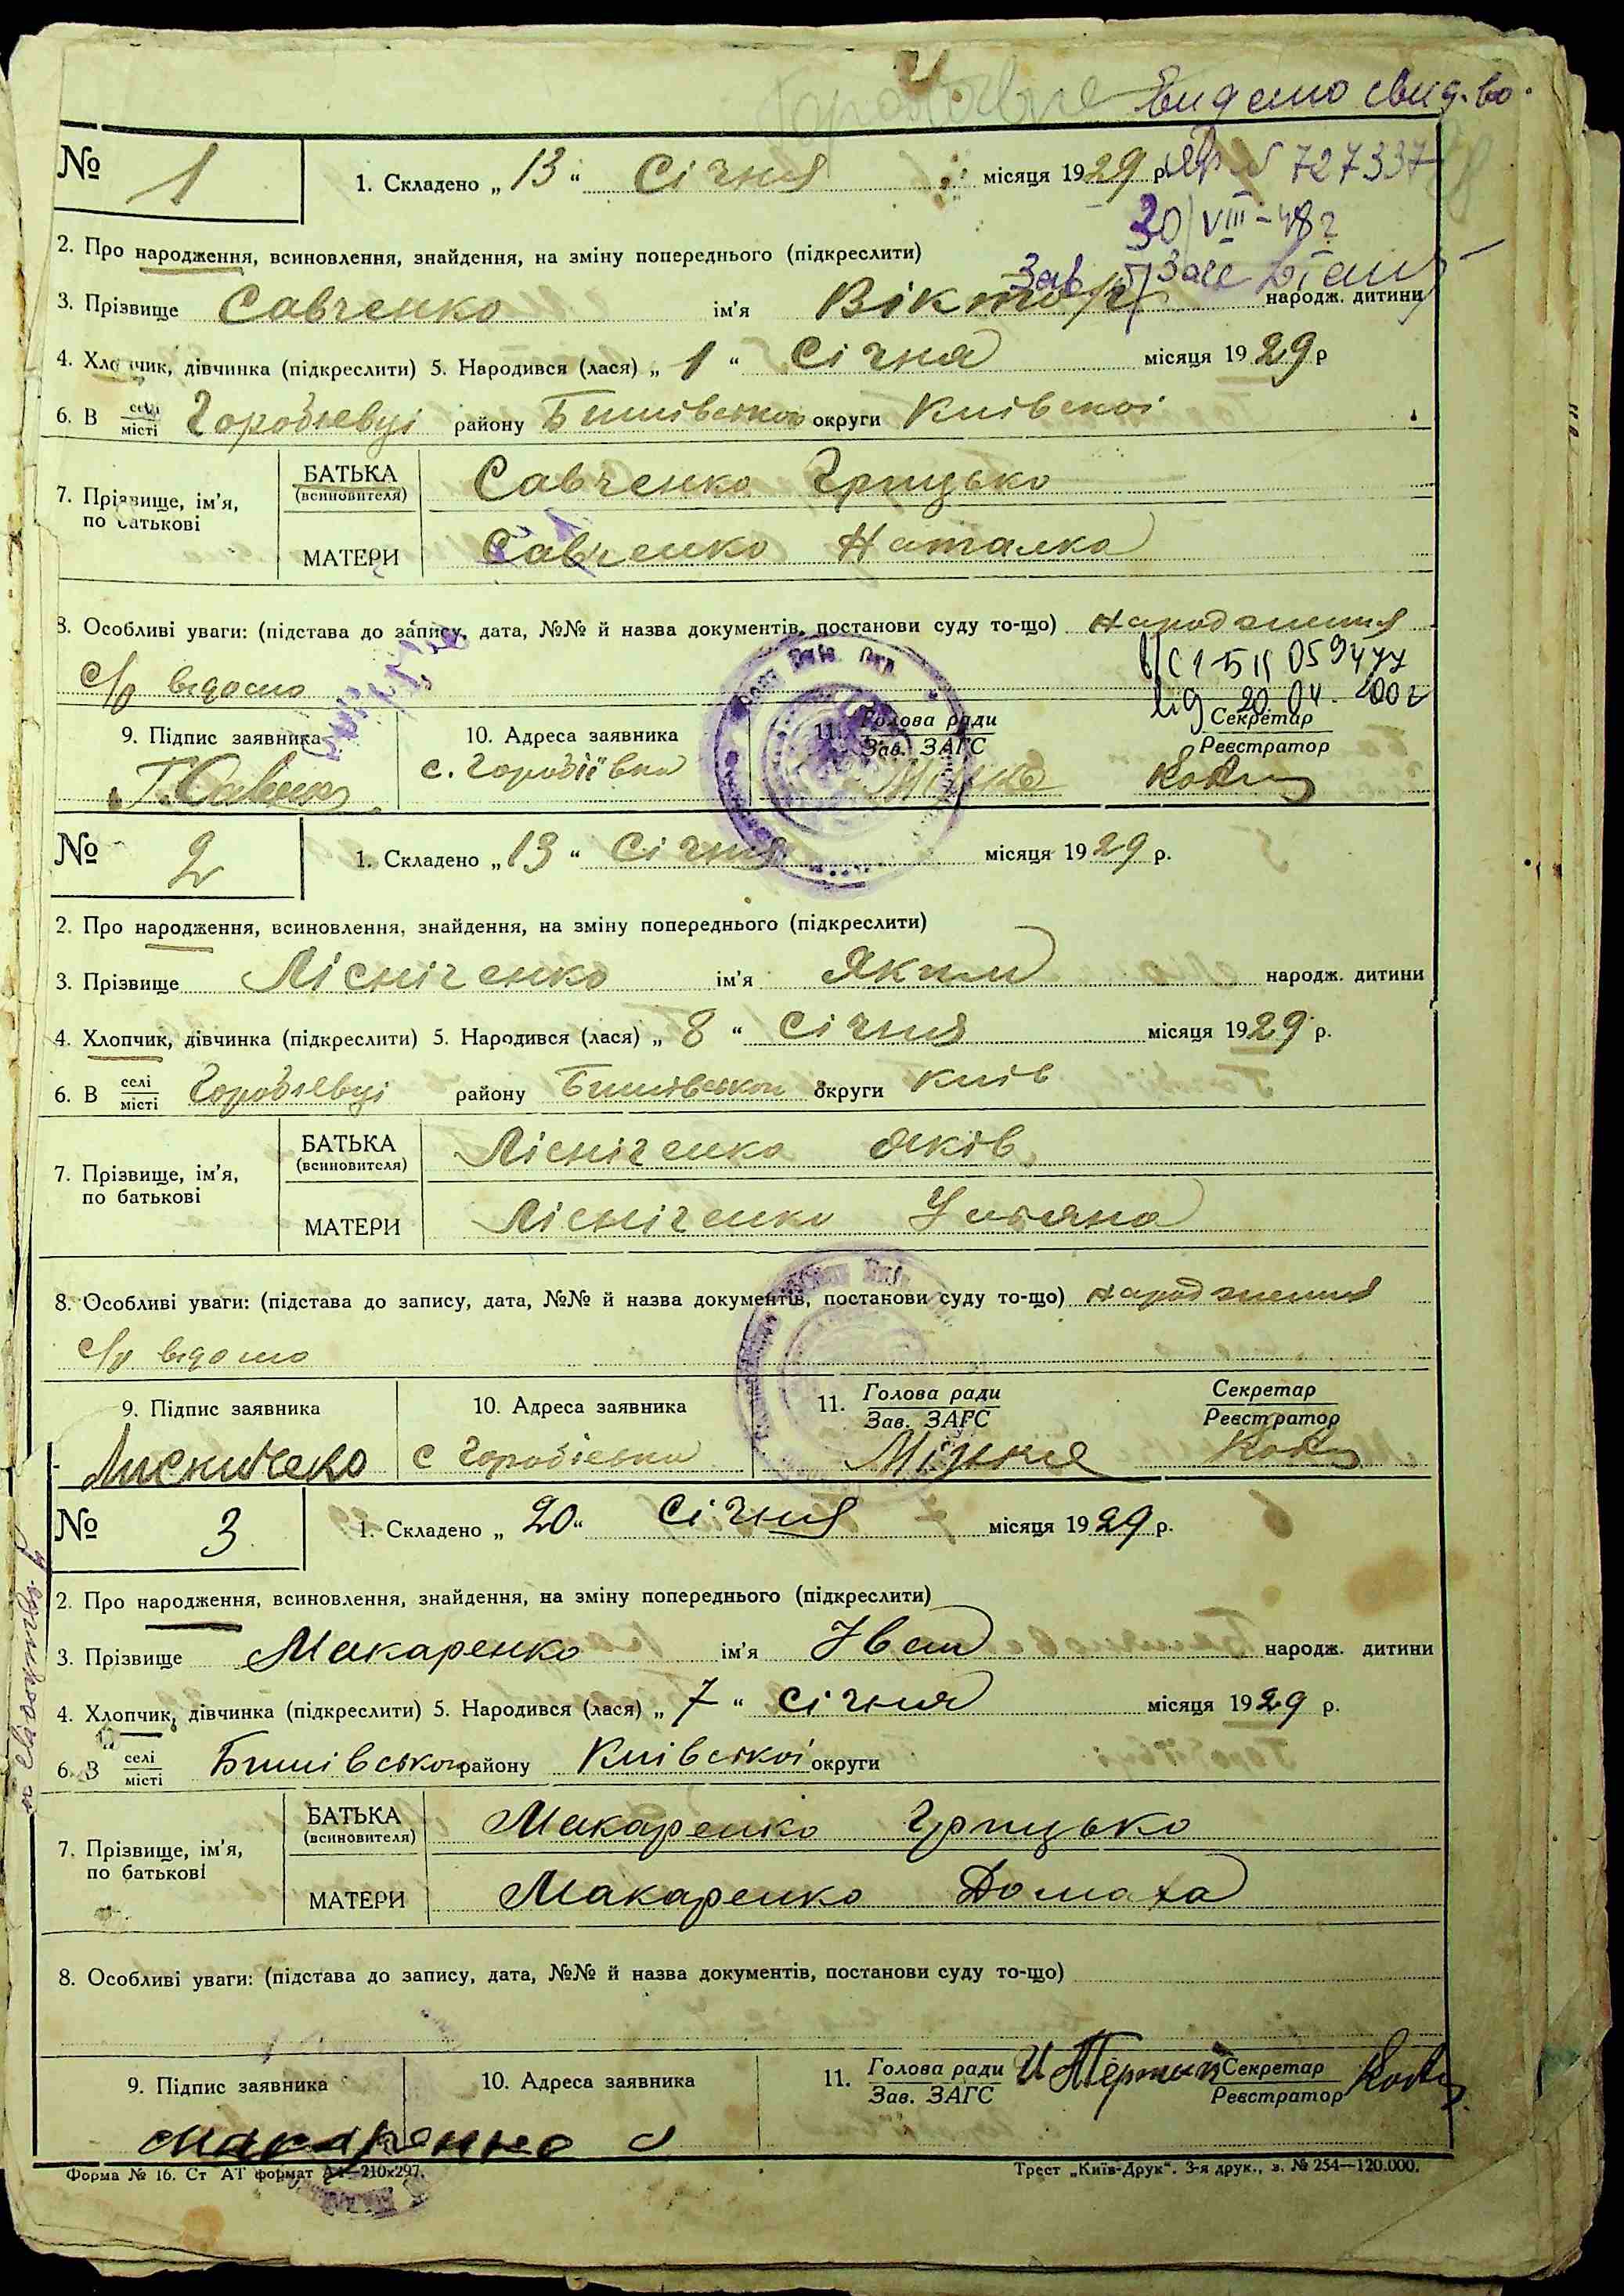 Видано свид-во.
№ 1
1. Складено „ 13 “ Січня місяця 1929 р. № 727337
30/VIII-48 г
2. Про народження, всиновлення, знайдення, на зміну попереднього (підкреслити)
Зав.
3. Прізвище Савченко ім'я Віктор народж. дитини
4. Хлопчик, дівчинка (підкреслити) 5. Народився (лася) „ 1 “ Січня місяця 1929 р
6. В селі/місті Горобіевці району Бишівської округи Київскої
7. Прізвище, ім'я, по батькові
БАТЬКА (всиновителя) Савченко Грицько
МАТЕРИ Савченко Наталка
8. Особливі уваги: (підстава до запису, дата, №№ й назва документів, постанови суду то-що) народження
с/р відомо
059477
від 20 04
9. Підпис заявника 10. Адреса заявника 11. Голова ради/Зав. ЗАГС Секретар/Реєстратор
Г. Савченко с. Горобіївка
№ 2
1. Складено „ 13 “ Січня місяця 1929 р.
2. Про народження, всиновлення, знайдення, на зміну попереднього (підкреслити)
3. Прізвище Лісніченко ім'я Яким народж. дитини
4. Хлопчик, дівчинка (підкреслити) 5. Народився (лася) „ 8 “ Січня місяця 1929 р.
6. В селі/місті Горобіевці району Бишівської округи Київ
7. Прізвище, ім'я, по батькові
БАТЬКА (всиновителя) Лісніченко Яків
МАТЕРИ Лісніченко Уляна
8. Особливі уваги: (підстава до запису, дата, №№ й назва документів, постанови суду то-що) народження
с/р відомо
9. Підпис заявника 10. Адреса заявника 11. Голова ради/Зав. ЗАГС Секретар/Реєстратор
с Горобіевка
№ 3
1. Складено „ 20 “ Січня місяця 1929 р.
2. Про народження, всиновлення, знайдення, на зміну попереднього (підкреслити)
3. Прізвище Макаренко ім'я Іван народж. дитини
4. Хлопчик, дівчинка (підкреслити) 5. Народився (лася) „ 7 “ січня місяця 1929 р.
6. В селі/місті Бишівського району Київської округи
7. Прізвище, ім'я, по батькові
БАТЬКА (всиновителя) Макаренко Грицько
МАТЕРИ Макаренко Домаха
8. Особливі уваги: (підстава до запису, дата, №№ й назва документів, постанови суду то-що)
9. Підпис заявника 10. Адреса заявника 11. Голова ради/Зав. ЗАГС Секретар/Реєстратор
Макаренко
Форма № 16. Ст АТ формат А4—210х297. Трест „Київ-Друк“. 3-я друк., з. № 254—120.000.